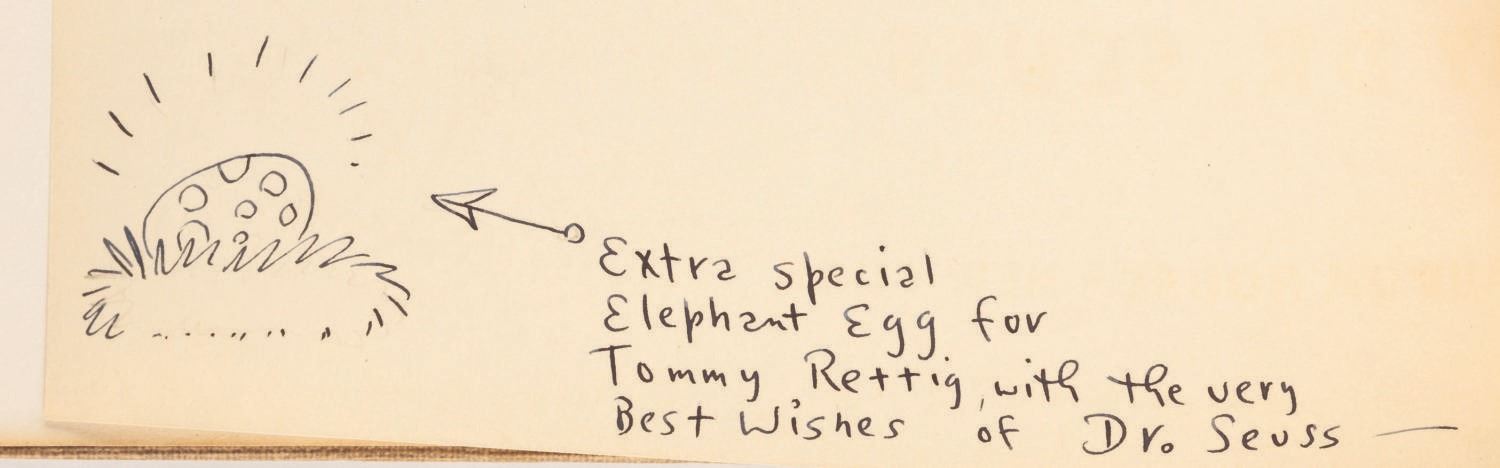 Extra special
Elephant Egg for
Tommy Rettig, with the very
Best Wishes of Dr. Seuss —